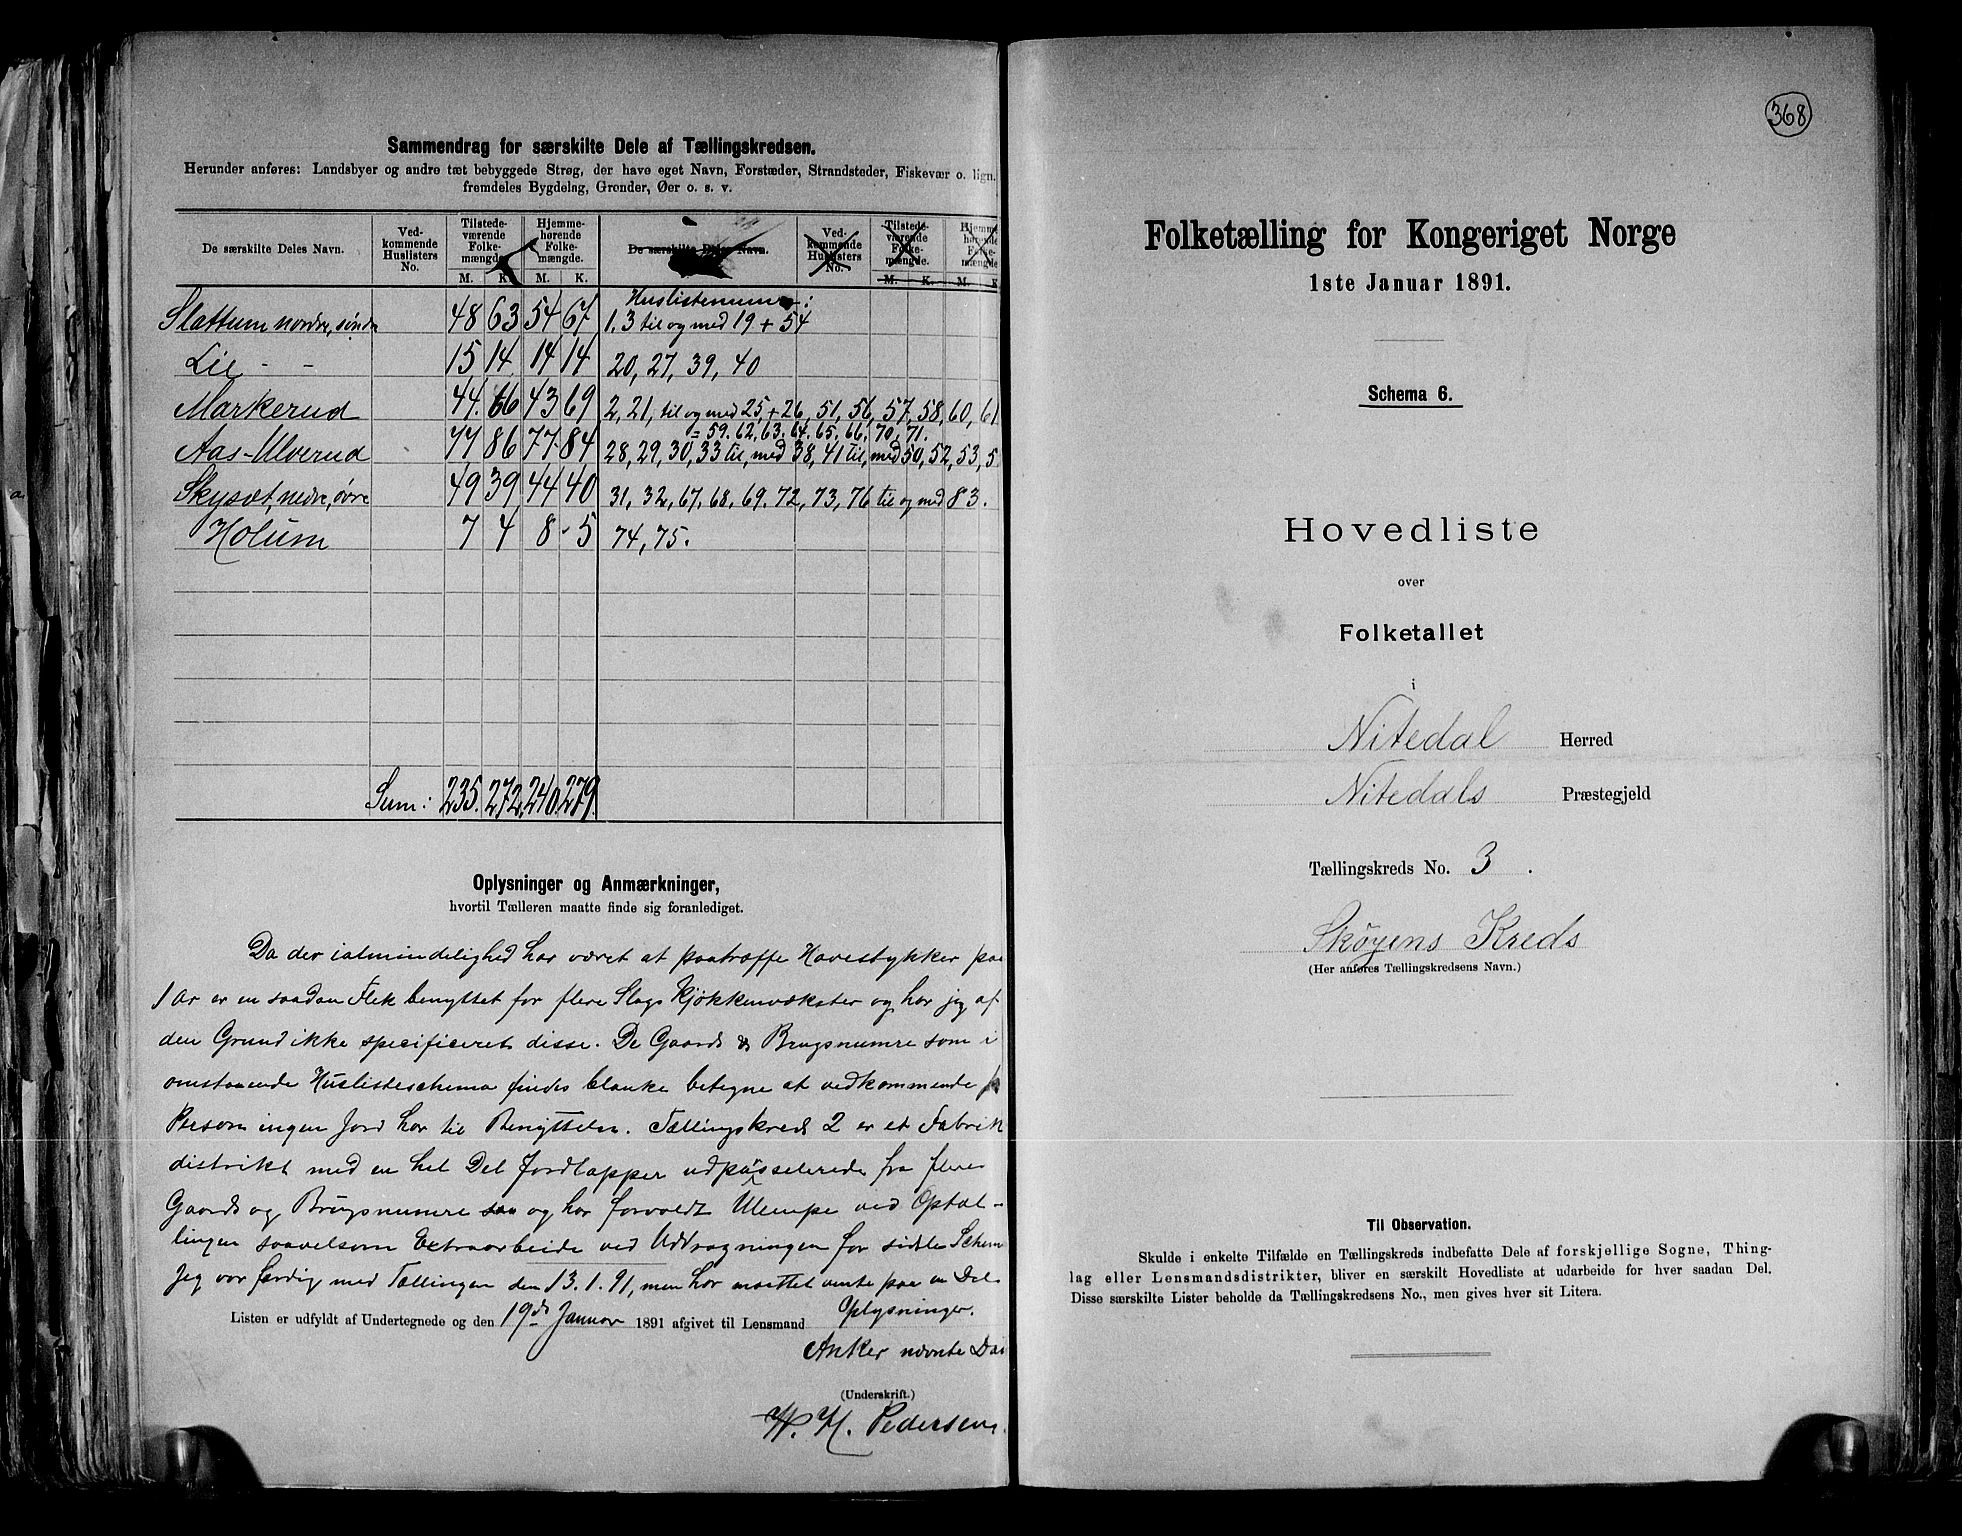 Sammendrag for særskilte Dele af Tællingskredsen.
Herunder anføres: Landsbyer og andre tæt bebyggede Strøg, der have eget Navn, Forstæder, Strandsteder, Fiskevær o. lign.
fremdeles Bygdelag, Grender, Øer o. s. v.
De særskilte Deles Navn. Ved-kommende Huslisters No. Tilstede-værende Folke-mængde. Hjemme-hørende Folke-mængde. De særskilte Deles Navn. Ved-kommende Huslisters No. Tilstede-værende Folke-mængde. Hjemme-hørende Folke-mængde
M. K. M. K. M. K. M. K
Huslistenumre:
Slattum nordre, søndre 48 63 54 67 1. 3 til og med 19 + 54
Lie - - 15 14 14 14 20, 27, 39, 40
Markerud 44. 66 43 69 2, 21, til og med 25, + 26, 51, 56, 57, 58, 60, 61
= 59. 62, 63, 64. 65. 66, 70, 71.
Aas-Ulverud 77 86 77 84 28, 29, 30, 33 til, med 38, 41 til, med 50, 52, 53, 5
Skysæt, nedre, øvre 49 39 44 40 31, 32, 67, 68, 69. 72, 73, 76 til og med 83.
Holum 7 4 8 - 5 74, 75.
Sum: 235. 272. 240. 279.
Oplysninger og Anmærkninger,
hvortil Tælleren maatte finde sig foranlediget.
Da der i almindelighed har været at paatræffe Havestykker paa
1 Ar er en saadan Flek benyttet for flere Slags Kjøkkenvækster og har jeg af
den Grund ikke specificeret disse. De Gaards & Brugsnumre som i
omstaaende Huslisteschema findes blanke betegne at vedkommende
Person ingen Jord har til Benyttelse. Tællingskreds 2 er et Fabrik
distrikt med en hel Del Jordlapper udparsselerede fra flere
Gaards og Brugsnumre og har forvoldt Ulempe ved Optæl-
lingen saavelsom Extraarbeide ved Uddragningen for sidste Schem
Jeg var færdig med Tællingen den 13. 1. 91, men har maattet vente paa en Del
Oplysninger.
Listen er udfyldt af Undertegnede og den 19de Januar 1891 afgivet til Lensmand
Anker nævnte Dag
(Underskrift.)
H. H. Pedersen.
368
Folketælling for Kongeriget Norge
1ste Januar 1891.
Schema 6.
Hovedliste
over
Folketallet
i
Nitedal Herred
Nitedals Præstegjeld
Tællingskreds No. 3.
Skøyens Kreds
(Her anføres Tællingskredsens Navn.)
Til Observation.
Skulde i enkelte Tilfælde en Tællingskreds indbefatte Dele af forskjellige Sogne, Thing-
lag eller Lensmandsdistrikter, bliver en særskilt Hovedliste at udarbeide for hver saadan Del.
Disse særskilte Lister beholde da Tællingskredsens No., men gives hver sit Litera.